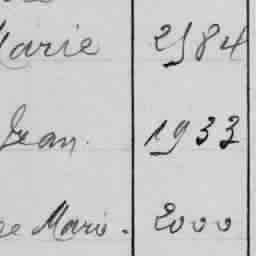 Marie 2584
Jean 1933
Marie. 2000